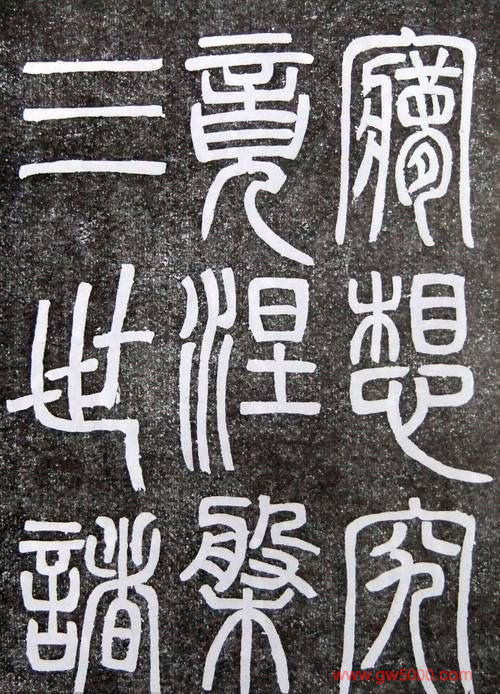 夢想究
竟涅槃
三世諸
www.gw5000.com